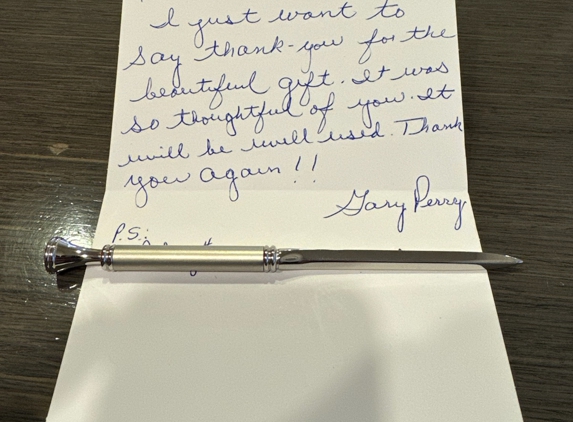 I just want to
say thank-you for the
beautiful gift. It was
so thoughtful of you. It
will be well used. Thank
you again!!
Gary Perry
P.S.: